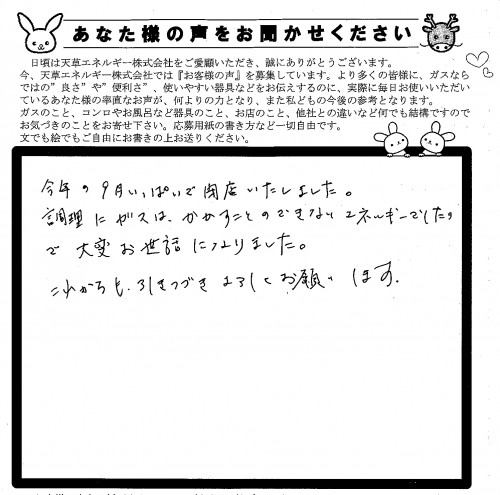 あなた様の声をお聞かせください
日頃は天草エネルギー株式会社をご愛顧いただき、誠にありがとうございます。
今、天草エネルギー株式会社では『お客様の声』を募集しています。より多くの皆様に、ガスなら
ではの”良さ”や”便利さ”、使いやすい器具などをお伝えするのに、実際に毎日お使いいただい
ているあなた様の率直なお声が、何よりの力となり、また私どもの今後の参考となります。
ガスのこと、コンロやお風呂など器具のこと、お店のこと、他社との違いなど何でも結構ですので
お気づきのことをお寄せ下さい。応募用紙の書き方など一切自由です。
文でも絵でもご自由にお書きの上お送りください。
今年の9月いっぱいで閉店いたしました。
調理にガスは、かかすことのできないエネルギーでしたの
で大変お世話になりました。
これからも、引きつづきよろしくお願いします。